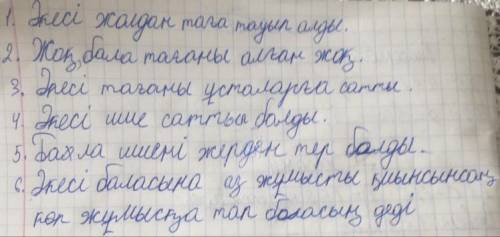 1. Әкесі жолдан таға тауып алды.
2. Жоқ, бала тағаны алған жоқ.
3. Әкесі тағаны ұсталарға сатты.
4. Әкесі шие сатты болды.
5. Бала шиені жерден тер болды.
6. Әкесі баласына аз жұмысты қиынсынсаң
көп жұмысқа тап боласың деді